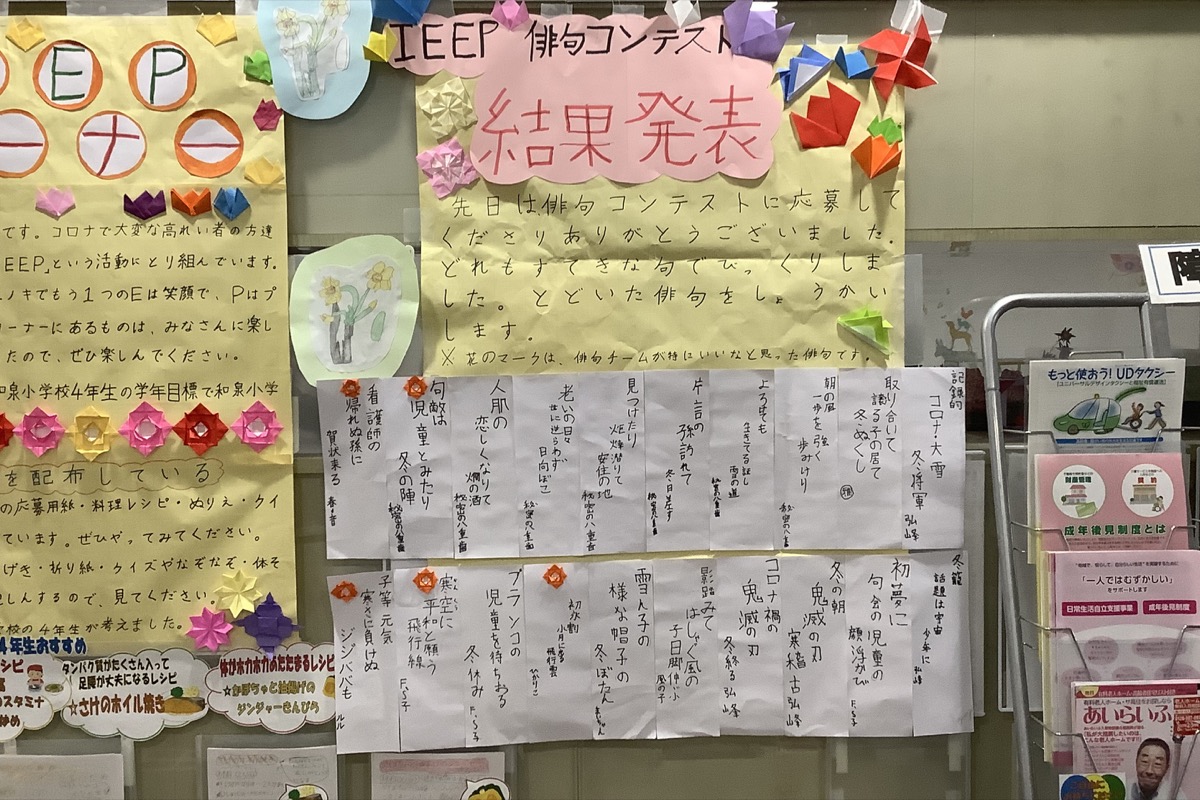 E P
ーナー
です。コロナで大変な高れい者の方達
EEP」という活動にとり組んでいます。
ノキでもう1つのEは笑顔で、Pはプ
コーナーにあるものは、みなさんに楽し
たので、ぜひ楽しんでください。
和泉小学校4年生の学年目標で和泉小学
を配布している
の応募用紙・料理レシピ・ぬりえ・クイ
ています。ぜひやってみてください。
げき・折り紙・クイズやなぞなぞ・体そ
しんするので、見てください。
校の4年生が考えました。
4年生おすすめ
レシピ
のスタミナ
炒め
タンパク質がたくさん入って
足腰が丈夫になるレシピ
☆さけのホイル焼き
体がホカホカあたたまるレシピ
☆かぼちゃと油揚げの
ジンジャーきんぴら
IEEP 俳句コンテスト
結果発表
先日は俳句コンテストに応募して
くださりありがとうございました。
どれもすてきな句でびっくりしま
した。とどいた俳句をしょうかい
します。
※ 花のマークは、俳句チームが特にいいなと思った俳句です。
記録的 コロナ・大雪 冬将軍 弘峰
取り合いて 譲る子の居て 冬ぬくし
朝の風 一歩を強く 歩みけり
よろけても 生きてる証し 雨の道
片言の 孫訪れて 冬日差す
見つけたり 炬燵潜りて 安住の地 秘密の八重歯
老いの日々 世に逆らわず 日向ぼこ 秘密の八重歯
人肌の 恋しくなりて 燗の酒 秘密の八重歯
句敵は 児童とみたり 冬の陣 秘密の八重歯
看護師の 帰れぬ孫に 賀状来る
冬籠 話題は宇宙 少年に 弘峰
初夢に 句会の児童の 顔浮かび F.S子
冬の朝 鬼滅の刃 寒稽古 弘峰
コロナ禍の 鬼滅の刃 冬終る 弘峰
影踏みて はしゃぐ風の子 日脚伸ぶ 風の子
雪ん子の 様な帽子の 冬ぼたん
初氷割 小月にる 飛行雲 ひかりこ
ブランコの 児童を待ちおる 冬休み F.S子
寒空に 平和と願う 飛行線 F.S子
子等元気 寒さに負けぬ ジジババも ルル
障
もっと使おう!UDタクシー
(ユニバーサルデザインタクシーと福祉有償運送)
財産管理
契約
成年後見制度とは
「一人ではむずかしい」
をサポートします
日常生活自立支援事業
成年後見制度
有料老人ホーム・サ高住をお探しなら
あいらいふ